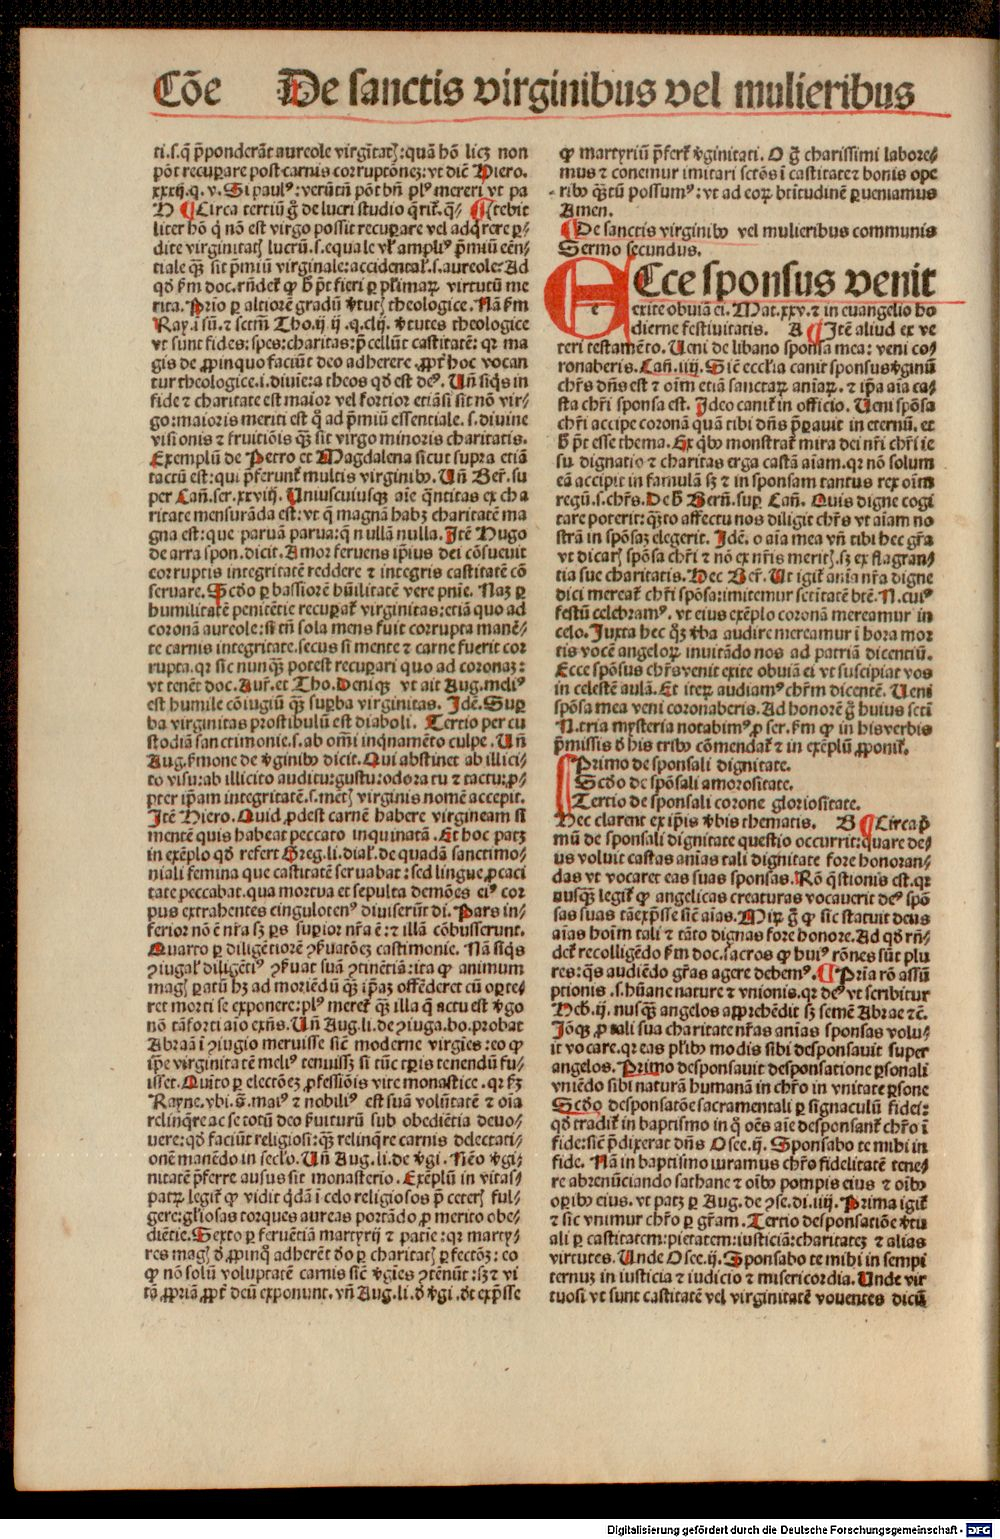 Cōe De sanctis virginibus vel mulieribus
ti.s.q̄ p̄ponderāt aureole virgītatꝭ:quā hō licꝫ non
pōt recuꝑare post carnis corruptōneꝫ:vt diē Hiero.
xxxij.q.v. Si paulꝰ:verūtn̄ pōt bn̄ plꝰ mereri vt pa
H ¶Circa tertiū g̊ de lucri studio q̄rit̄.q̄/ ¶Itebit
liter hō q̄ nō est virgo possit recuꝑare vel adq̄rere ꝑ-
dite virginitatꝭ lucrū.s.equale vl̄ ampliꝰ p̄miū eēn/
tiale qꝫ sit p̄miū virginale:accidental̄.s.aureole:Ad
qd̄ ẜm doc.rn̄det̄ ꝙ h̄ pt̄ fieri ꝑ pl̄imaꝝ virtutū me
rita. Prīo ꝑ altiorē gradū v̄tutꝭ theologice. Nā ẜm
Ray.i sū.⁊ sctm̄ Tho.ij ij .q.clij. v̄tutes theologice
vt sunt fides:spes:charitas:p̄cellūt castitatē: qr ma
gis de ꝓpinquo faciūt deo adherere.ꝓpt̄ hoc vocan
tur theologice.i.diuīe:a theos qd̄ est deꝰ. Un̄ siq̄s in
fide ⁊ charitate est maior vel fortior etiāsi sit nō vir/
go:maioris meriti est q̊ ad p̄miū essentiale.s.diuine
visionis ⁊ fruitiōis qꝫ sit virgo minoris charitatis.
Exemplū de Petro et Magdalena sicut supra etiā
tactū est:qui p̄ferunt̄ multis virginibꝰ. Un̄ Ber̄.su
per Can̄.ser.xxvij. Uniuscuiusqꝫ aīe q̄ntitas ex cha
ritate mensurāda est:vt q̄ magnā habꝫ charitatē ma
gna est:que paruā parua:q̄ nullā nulla. Itē Hugo
de arra spon.dicit. Amor feruens ip̄ius dei cōsueuit
corruptis integritatē reddere ⁊ integris castitatē cō
seruare. Scd̄o ꝑ bassiorē hūilitatē vere pnīe. Naꝫ ꝑ
humilitatē penitētie recuꝑat̄ virginitas:etiā quo ad
coronā aureole:si tn̄ sola mens fuit corrupta manē/
te carnis integritate.secus si mente ⁊ carne fuerit cor
rupta.qr sic nunqꝫ potest recuꝑari quo ad coronaꝫ:
vt tenēt doc. Aur̄.et Tho.Deniqꝫ vt ait Aug.meliꝰ
est humile cōiugiū qꝫ suꝑba virginitas. Idē.Suꝑ
ba virginitas prostibulū est diaboli. Tertio per cu
stodiā sanctimonie.s.ab omī inq̄namēto culpe. Un̄
Aug.ẜmone de v̄ginibꝰ dicit. Qui abstinet ab illici/
to visu:ab illicito auditu:gustu:odoratu ⁊ tactu:ꝓ/
pter ip̄am integritatē.s.mētꝭ virginis nomē accepit.
Itē Hiero. Quid ꝓdest carnē habere virgineam si
mentē quis habeat peccato inquinatā. Et hoc patꝫ
in exēplo qd̄ refert Greg.li.dial̄.de quadā sanctimo/
niali femina que castitatē seruabat:sed lingue ꝓcaci
tate peccabat.qua mortua et sepulta demōes eiꝰ cor
pus extrahentes cingulotenꝰ diuiserūt di. Pars in/
ferior nō ē nr̄a sꝫ ꝑs suꝑior nr̄a ē: ⁊ illā cōbusserunt.
Quarto ꝑ diligētiorē ꝯẜuatōeꝫ castimonie. Nā siq̄s
ꝯiugal̄ diligētiꝰ ꝯẜuat suā ꝯtinētiā:ita ꝙ animum
magꝭ ꝑatū hꝫ ad moriēdū qꝫ ip̄aꝫ offēderet cū oꝑte/
ret morti se exponere:plꝰ meret̄ qꝫ illa q̄ actu est v̄go
nō tā forti aīo exn̄s. Un̄ Aug.li.de ꝯiuga.bo.probat
Abraā ī ꝯiugio meruisse siē moderne virgies:eo ꝙ
ip̄e virginitatē meliꝰ tenuissꝫ si tūc tꝑis tenendū fu/
isset. Quito ꝑ electōeꝫ ꝓfessiōis vite monastice.qr ẜꝫ
Rayne.vbi.s̄.maiꝰ ⁊ nobiliꝰ est suā volūtatē ⁊ oīa
relinq̄re ac se totū deo fruiturū sub obediētia deuo/
uere:qd̄ faciūt religiosi:qꝫ relinq̄re carnis delectati/
onē manēdo in secl̄o. Un̄ Aug.li.de v̄gi. Nēo v̄gi/
nitatē p̄ferre ausus sit monasterio. Exēplū in vitas/
patꝝ legit̄ ꝙ vidit q̄dā ī celo religiosos p̄ ceterꝭ ful/
gere:gl̄iosas torques aureas portādo ꝓ merito obe/
diētie. Sexto ꝑ feruētiā martyrij ⁊ patīe:qr marty/
res magꝭ d̄ ꝓpinq̊ adherēt d̄o ꝑ charitatꝭ ꝑfectōꝫ: eo
ꝙ nō solū voluptatē carnis siē v̄gīes ꝯtēnūt:sꝫ ⁊ vi
tā ꝓpriā ꝓpt̄ deū exponunt.vn̄ Aug.li.d̄ v̄gi.d̄t exp̄sse
ꝙ martyriū p̄fert̄ v̄ginitati. O g̊ charissimi labore/
mus ⁊ conemur imitari sctōs ī castitate⁊ bonis ope
ribꝰ q̄ntū possumꝰ: vt ad eoꝝ bt̄itudinē ꝑueniamus
Amen.
¶De sanctis virginibꝰ vel mulieribus communis
Sermo secundus.
Ecce sponsus venit
exite obuiā ei. Mat.xxv.⁊ in euangelio ho
dierne festiuitatis. A ¶Itē aliud ex ve
teri testamēto. Ueni de libano sponsa mea: veni co/
ronaberis. Can̄.iiij. Siē eccl̄ia canit sponsus v̄ginū
chr̄s dn̄s est ⁊ oīm etiā sanctaꝝ aīaꝝ. ⁊ ip̄a aīa ca/
sta chr̄i sponsa est. Ideo canit̄ in officio. Ueni spōsa
chr̄i accipe coronā quā tibi dn̄s p̄ꝑauit in eternū. et
h̄ pt̄ esse thema. Ex qbꝰ monstrat̄ mira dei nr̄i chr̄i ie
su dignatio ⁊ charitas erga castā aīam.qr nō solum
eā accipit in famulā sꝫ ⁊ in sponsam tantus rex oīm
regū.s.chr̄s.De h̄ Bern̄.suꝑ Can̄. Quis digne cogi
tare poterit:q̄nto affectu nos diligit chr̄s vt aīam no
strā in spōsaꝫ elegerit. Idē. o aīa mea vn̄ tibi hec gr̄a
vt dicarꝭ spōsa chr̄i ⁊ nō ex nr̄is meritꝭ.sꝫ ex flagran/
tia sue charitatis. Hec Ber̄. Ut igit̄ anīa nr̄a digne
dici mereat̄ chr̄i spōsa:imitemur sctitatē btē.N.cuiꝰ
festū celebramꝰ. vt eius exēplo coronā mereamur in
celo. Juxta hec qꝫ v̄ba audire mereamur ī hora mor
tis vocē angeloꝝ inuitādo nos ad patriā dicentiū.
Ecce spōsus chr̄s venit exite obuiā ei vt suscipiat vos
in celestē aulā. Et iteꝝ audiamꝰ chr̄m dicentē. Ueni
spōsa mea veni coronaberis. Ad honorē g̊ huius sctī
N.tria mysteria notabimꝰ ꝓ ser.ẜm ꝙ in hisverbis
p̄missis d̄ his tribꝰ cōmendat̄ ⁊ in exēplū ꝓponit̄.
Primo de sponsali dignitate.
Scd̄o de spōsali amorositate.
Tertio de sponsali corone gloriositate.
Hec clarent ex ip̄is v̄bis thematis. B ¶Circa p̄
mū de sponsali dignitate questio occurrit:quare de/
us voluit castas anīas tali dignitate fore honoran/
das vt vocaret eas suas sponsas. Rō q̄stionis est.qr
nusqꝫ legit̄ ꝙ angelicas creaturas vocauerit deꝰ spō
sas suas tā exp̄sse siē aīas. Miꝝ g̊ ꝙ sic statuit deus
aīas hoīm tali ⁊ tāto dignas fore honore. Ad qd̄ rn̄/
det̄ recolligēdo ẜm doc.sacros ꝙ huiꝰ rōnes sūt plu
res:q̄s audiēdo gr̄as agere debemꝰ. ¶Prīa rō assū
ptionis .s.hūane nature ⁊ vnionis.qr deꝰ vt scribitur
Heb.ij. nusqꝫ angelos apprehēdit sꝫ semē Abrae ⁊c̄.
Iōqꝫ ꝓ tali sua charitate nr̄as anīas sponsas volu/
it vocare.qr eas pl̄ibꝰ modis sibi desponsauit super
angelos. Primo desponsauit desponsatione ꝑsonali
vniēdo sibi naturā humanā in chr̄o in vnitate ꝑsone
Scd̄o desponsatōe sacramentali ꝑ signaculū fidei:
qd̄ tradit̄ in baptismo in q̊ oēs aīe desponsant̄ chr̄o ī
fide:siē p̄dixerat dn̄s Osee.ij. Sponsabo te mihi in
fide. Nā in baptismo iuramus chr̄o fidelitatē tene/
re abrenūciando sathane ⁊ oībꝰ pompis eius ⁊ oībꝰ
oꝑibꝰ eius. vt patꝫ ꝑ Aug.de ꝯse.di.iiij. Prima igit̄
⁊ sic vnimur chr̄o ꝑ gr̄am. Tertio desponsatiōe v̄tu
ali ꝑ castitatem:pietatem:iusticiā:charitateꝫ ⁊ alias
virtutes. Unde Osee.ij. Sponsabo te mihi in sempi
ternuꝫ in iusticia ⁊ iudicio ⁊ misericordia. Unde vir
tuosi vt sunt castitatē vel virginitatē vouentes dicū
Digitalisierung gefördert durch die Deutsche Forschungsgemeinschaft - DFG